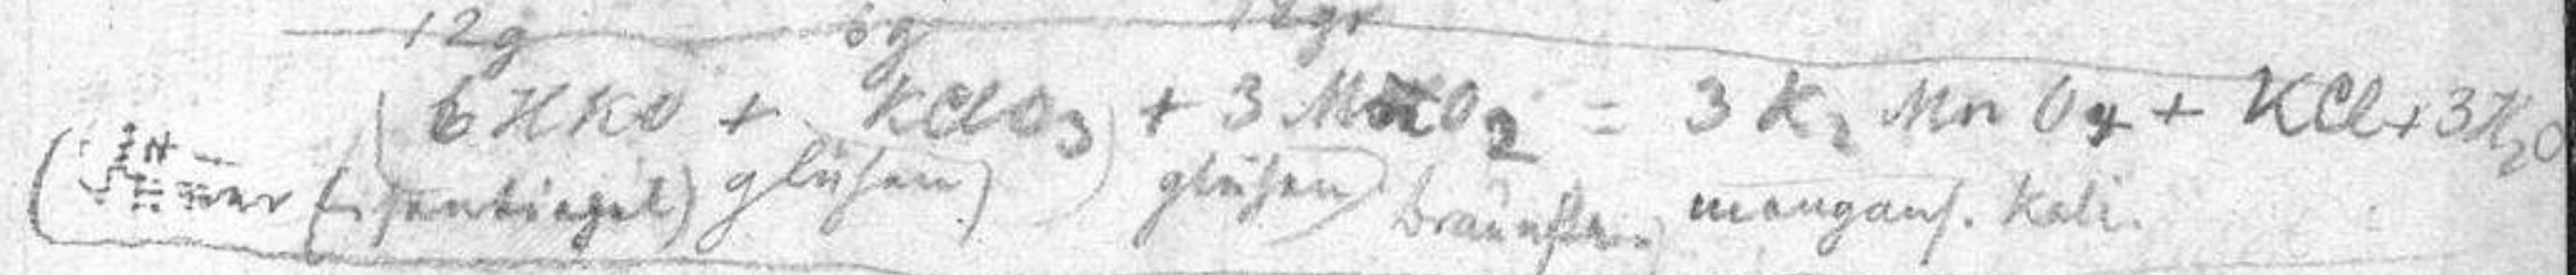 12g 6g 12gr
(6 HKO + KClO3) + 3 MnO2 = 3 K2 Mn O4 + KCl + 3H2O
(Eisentiegel) glühen) glühen Braunstein mangans. Kali.